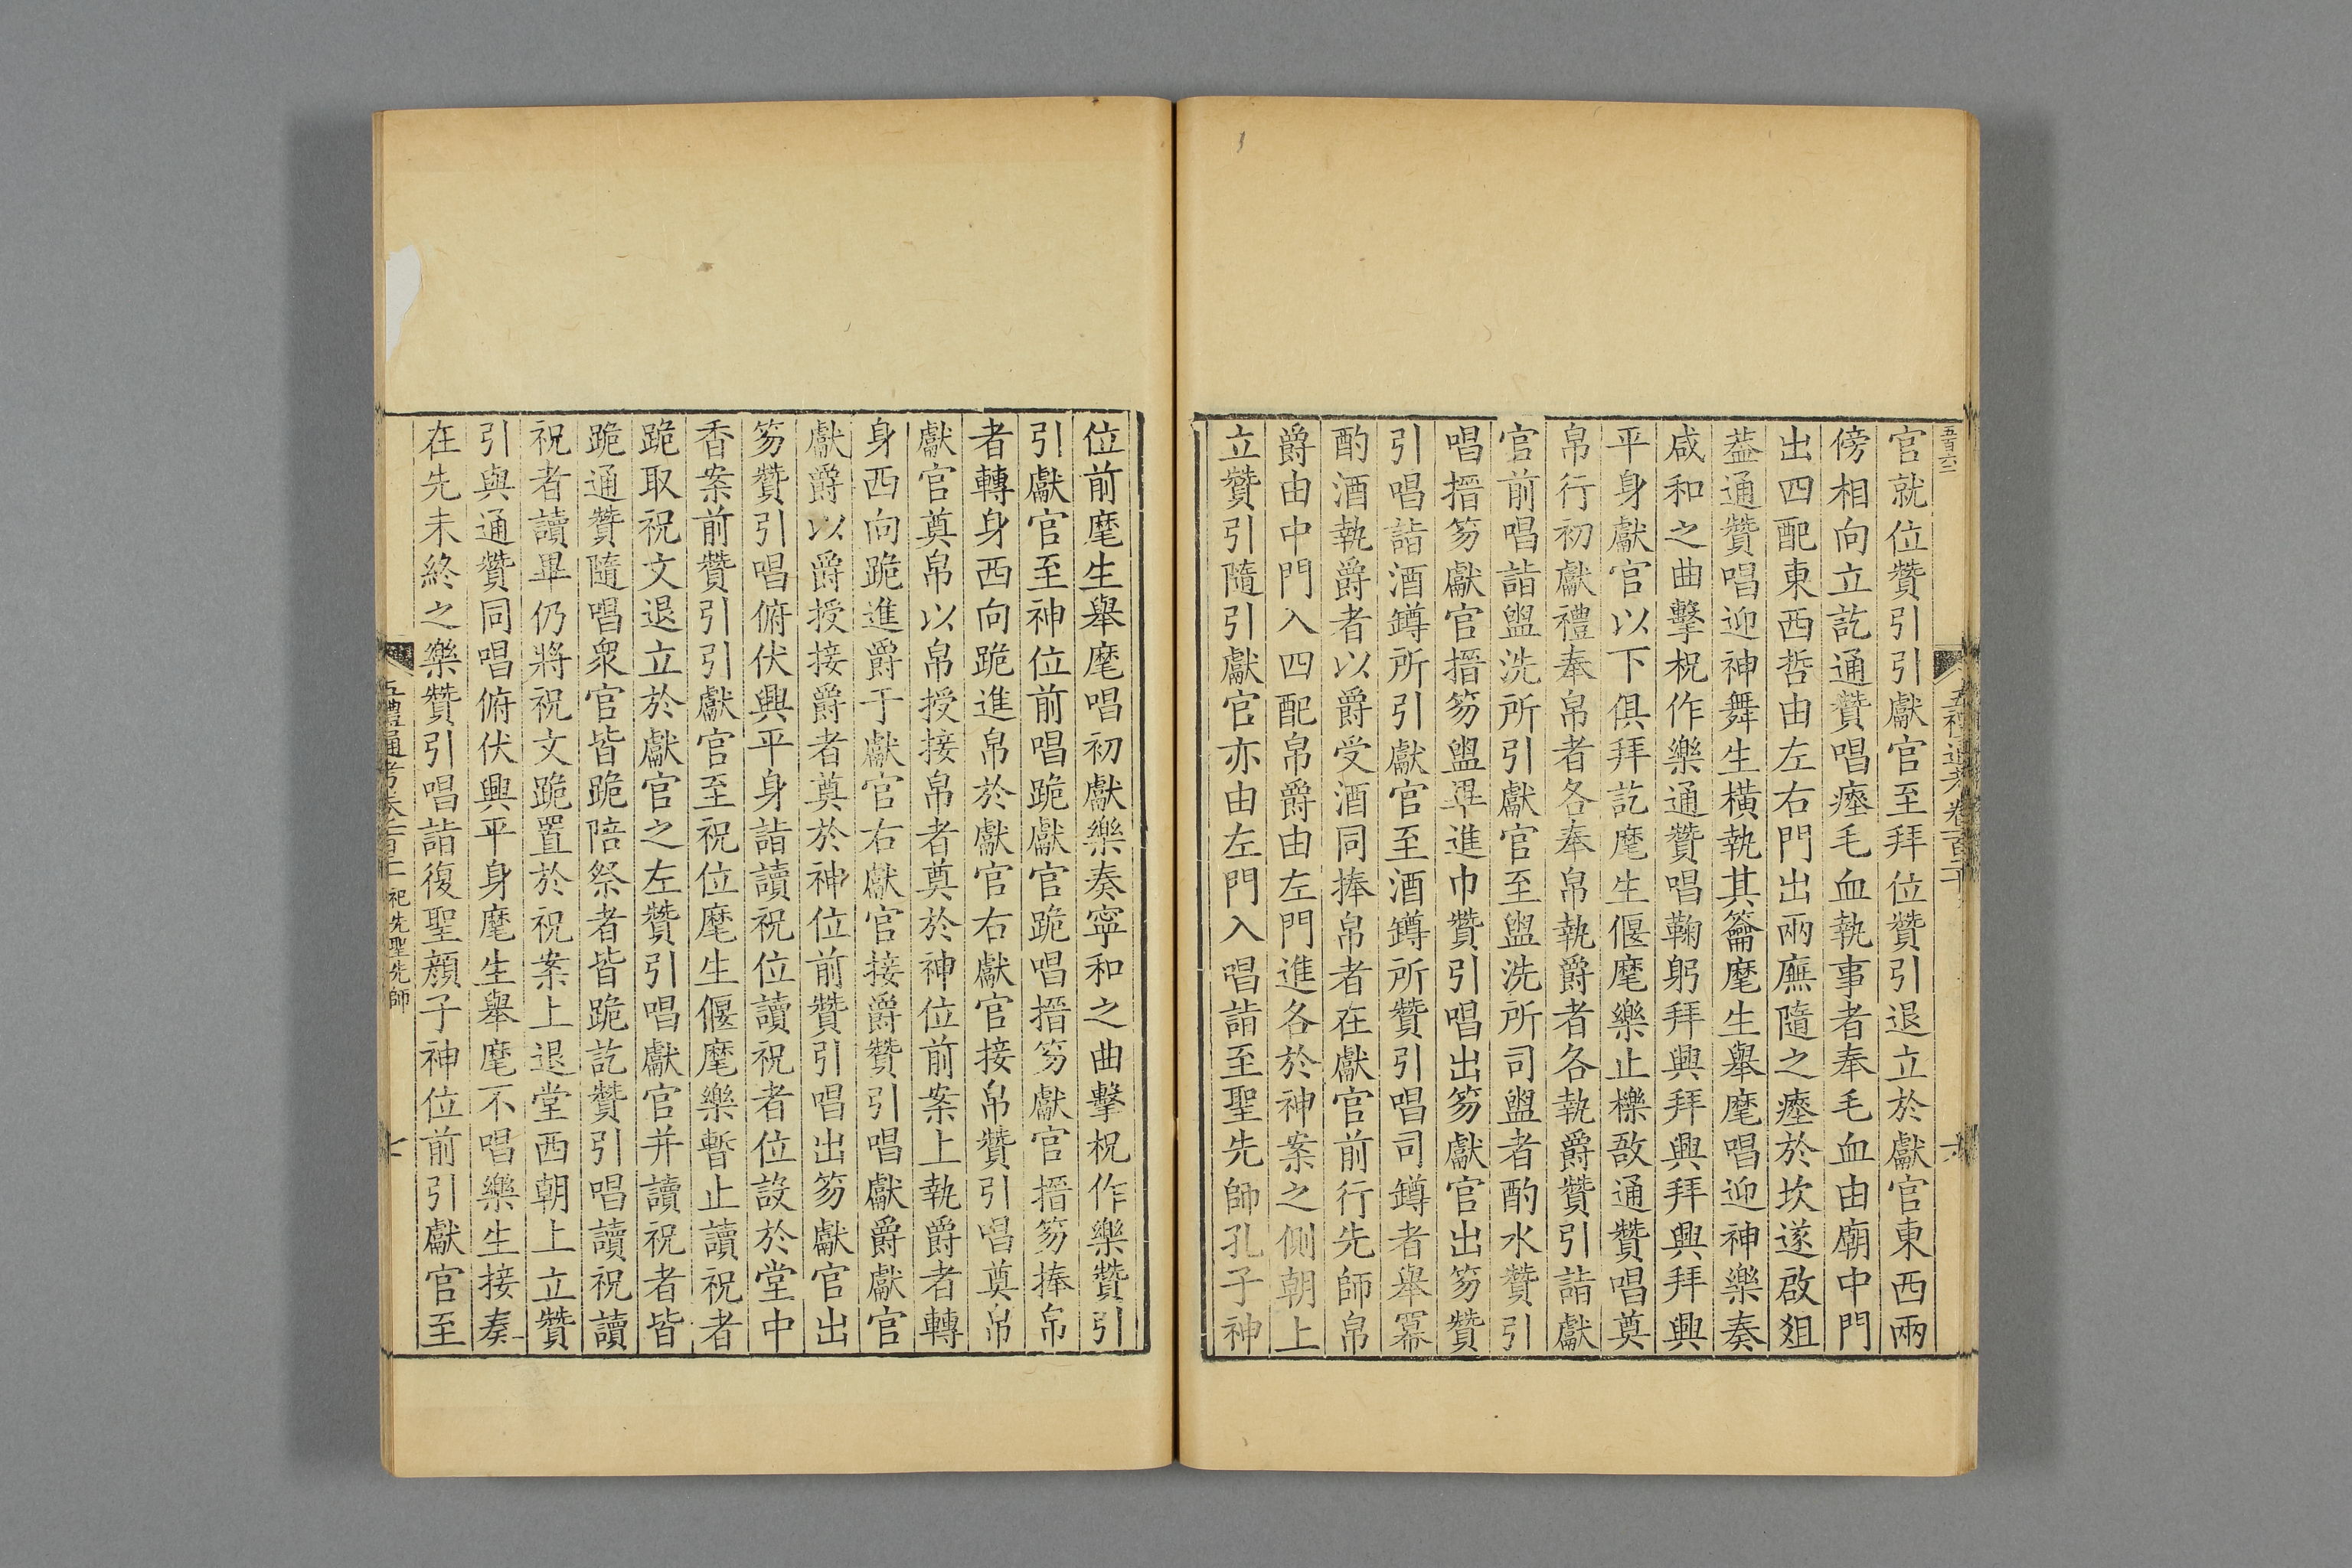 五百六二
官就位贊引引獻官至拜位贊引退立於獻官東西兩
傍相向立訖通贊唱瘞毛血執事者奉毛血由廟中門
出四配東西哲由左右門出兩廡隨之瘞於坎遂啟俎
葢通贊唱迎神舞生橫執其籥麾生舉麾唱迎神樂奏
咸和之曲擊柷作樂通贊唱鞠躬拜興拜興拜興拜興
平身獻官以下俱拜訖麾生偃麾樂止櫟敔通贊唱奠
帛行初獻禮奉帛者各奉帛執爵者各執爵贊引詣獻
官前唱詣盥洗所引獻官至盥洗所司盥者酌水贊引
唱搢笏獻官搢笏盥畢進巾贊引唱出笏獻官出笏贊
引唱詣酒罇所引獻官至酒罇所贊引唱司罇者舉冪
酌酒執爵者以爵受酒同捧帛者在獻官前行先師帛
爵由中門入四配帛爵由左門進各於神案之側朝上
立贊引隨引獻官亦由左門入唱詣至聖先師孔子神
位前麾生舉麾唱初獻樂奏寧和之曲擊柷作樂贊引
引獻官至神位前唱跪獻官跪唱搢笏獻官搢笏捧帛
者轉身西向跪進帛於獻官右獻官接帛贊引唱奠帛
獻官奠帛以帛授接帛者奠於神位前案上執爵者轉
身西向跪進爵于獻官右獻官接爵贊引唱獻爵獻官
獻爵以爵授接爵者奠於神位前贊引唱出笏獻官出
笏贊引唱俯伏興平身詣讀祝位讀祝者位設於堂中
香案前贊引引獻官至祝位麾生偃麾樂暫止讀祝者
跪取祝文退立於獻官之左贊引唱獻官并讀祝者皆
跪通贊隨唱衆官皆跪陪祭者皆跪訖贊引唱讀祝讀
祝者讀畢仍將祝文跪置於祝案上退堂西朝上立贊
引與通贊同唱俯伏興平身麾生舉麾不唱樂生接奏
在先未終之樂贊引唱詣復聖顏子神位前引獻官至
五禮通考卷一百二十 祀先聖先師 七